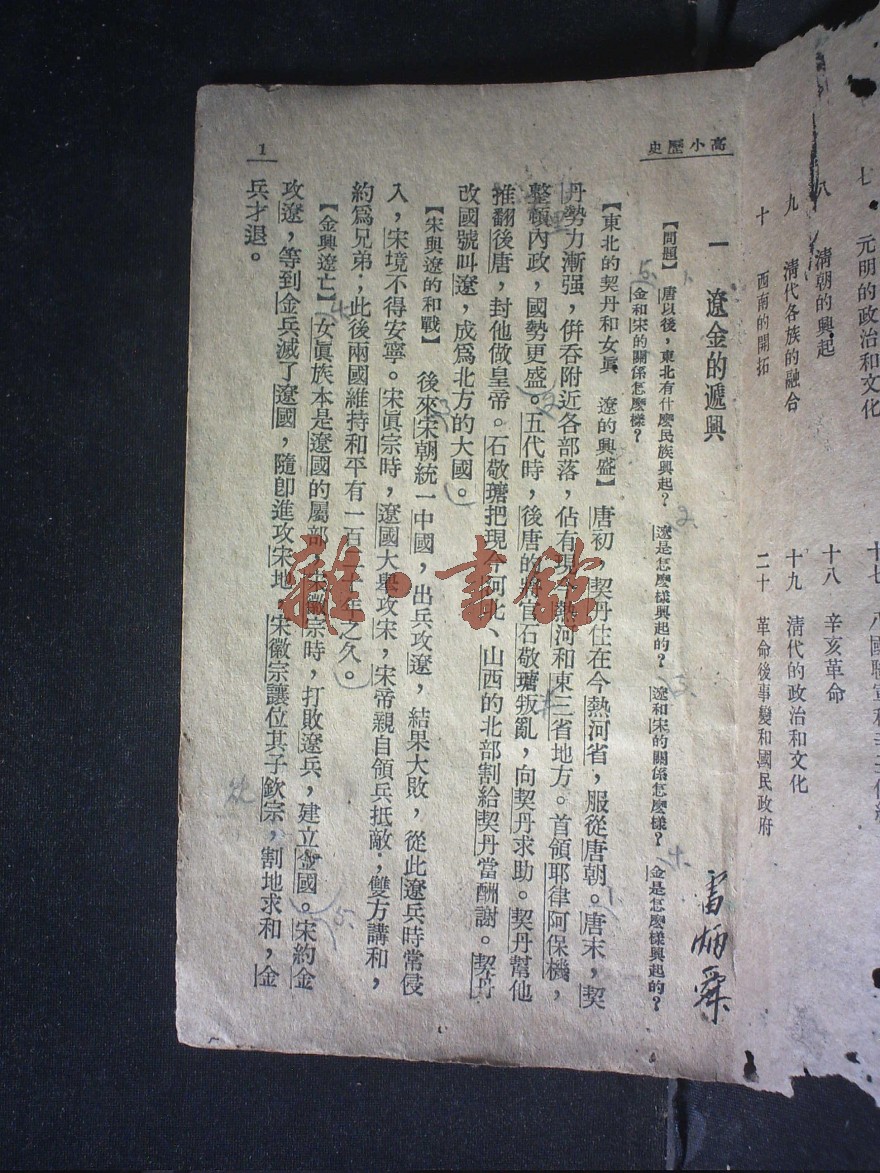 高小歷史
1
一 遼金的遞興
【問題】 唐以後，東北有什麼民族興起？ 遼是怎麼樣興起的？ 遼和宋的關係怎麼樣？ 金是怎麼樣興起的？
金和宋的關係怎麼樣？
【東北的契丹和女眞 遼的興盛】 唐初，契丹住在今熱河省，服從唐朝。唐末，契
丹勢力漸强，併吞附近各部落，佔有現今熱河和東三省地方。首領耶律阿保機，
整頓內政，國勢更盛。五代時，後唐的將官石敬瑭叛亂，向契丹求助。契丹幫他
推翻後唐，封他做皇帝。石敬瑭把現今河北、山西的北部割給契丹當酬謝。契丹
改國號叫遼，成爲北方的大國。
【宋與遼的和戰】 後來宋朝統一中國，出兵攻遼，結果大敗，從此遼兵時常侵
入，宋境不得安寧。宋眞宗時，遼國大舉攻宋，宋帝親自領兵抵敵；雙方講和，
約爲兄弟；此後兩國維持和平有一百二十年之久。
【金興遼亡】 女眞族本是遼國的屬部，宋徽宗時，打敗遼兵，建立金國。宋約金
攻遼，等到金兵滅了遼國，隨卽進攻宋地，宋徽宗讓位其子欽宗，割地求和，金
兵才退。
七 元明的政治和文化
八 清朝的興起
九 清代各族的融合
十 西南的開拓
十七 八國聯軍和
十八 辛亥革命
十九 清代的政治和文化
二十 革命後事變和國民政府
雜·書館